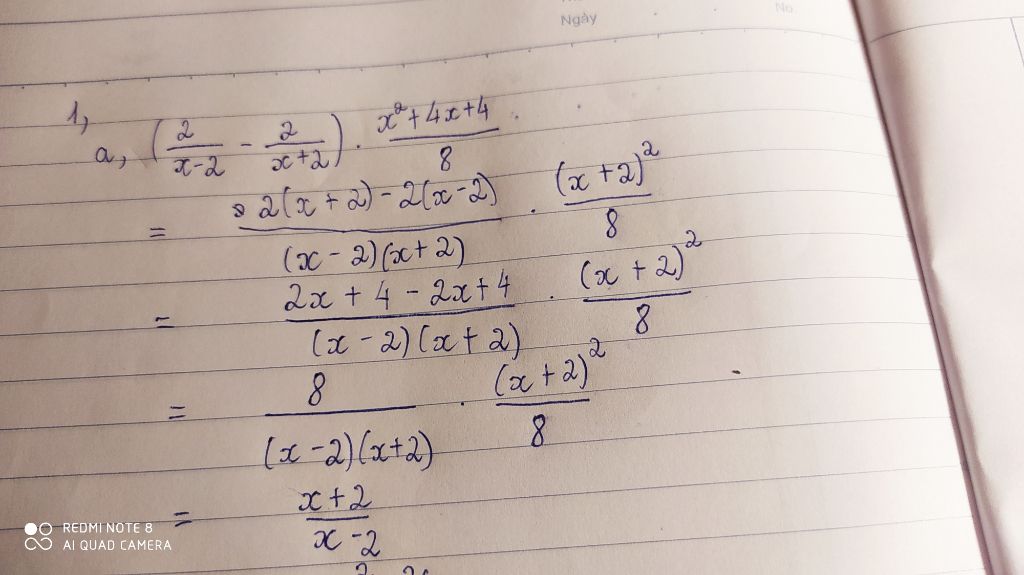 Ngày
No.
1,
a, (2/(x-2) - 2/(x+2)) . (x²+4x+4)/8 .
= (2(x+2) - 2(x-2))/((x-2)(x+2)) . (x+2)²/8
= (2x+4-2x+4)/((x-2)(x+2)) . (x+2)²/8
= 8/((x-2)(x+2)) . (x+2)²/8
= (x+2)/(x-2)
REDMI NOTE 8
AI QUAD CAMERA